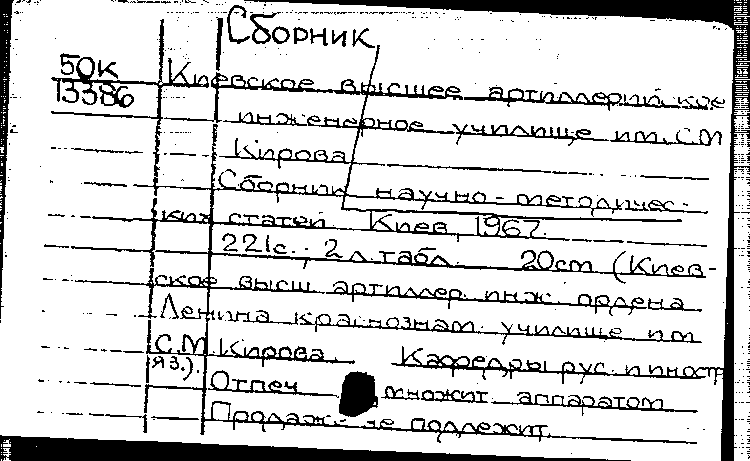 Сборник
50к
13386
Киевское высшее артиллерийское
инженерное училище им. С.М
Кирова
Сборник научно-методичес-
ких статей Киев, 1967.
221с.; 2 л. табл. 20cm (Киев-
ское высш артиллер инж ордена
Ленина краснознам. училище им
С.М. Кирова. Кафедры рус. и иностр
яз.).
Отпеч множит. аппаратом
Продаже не подлежит.